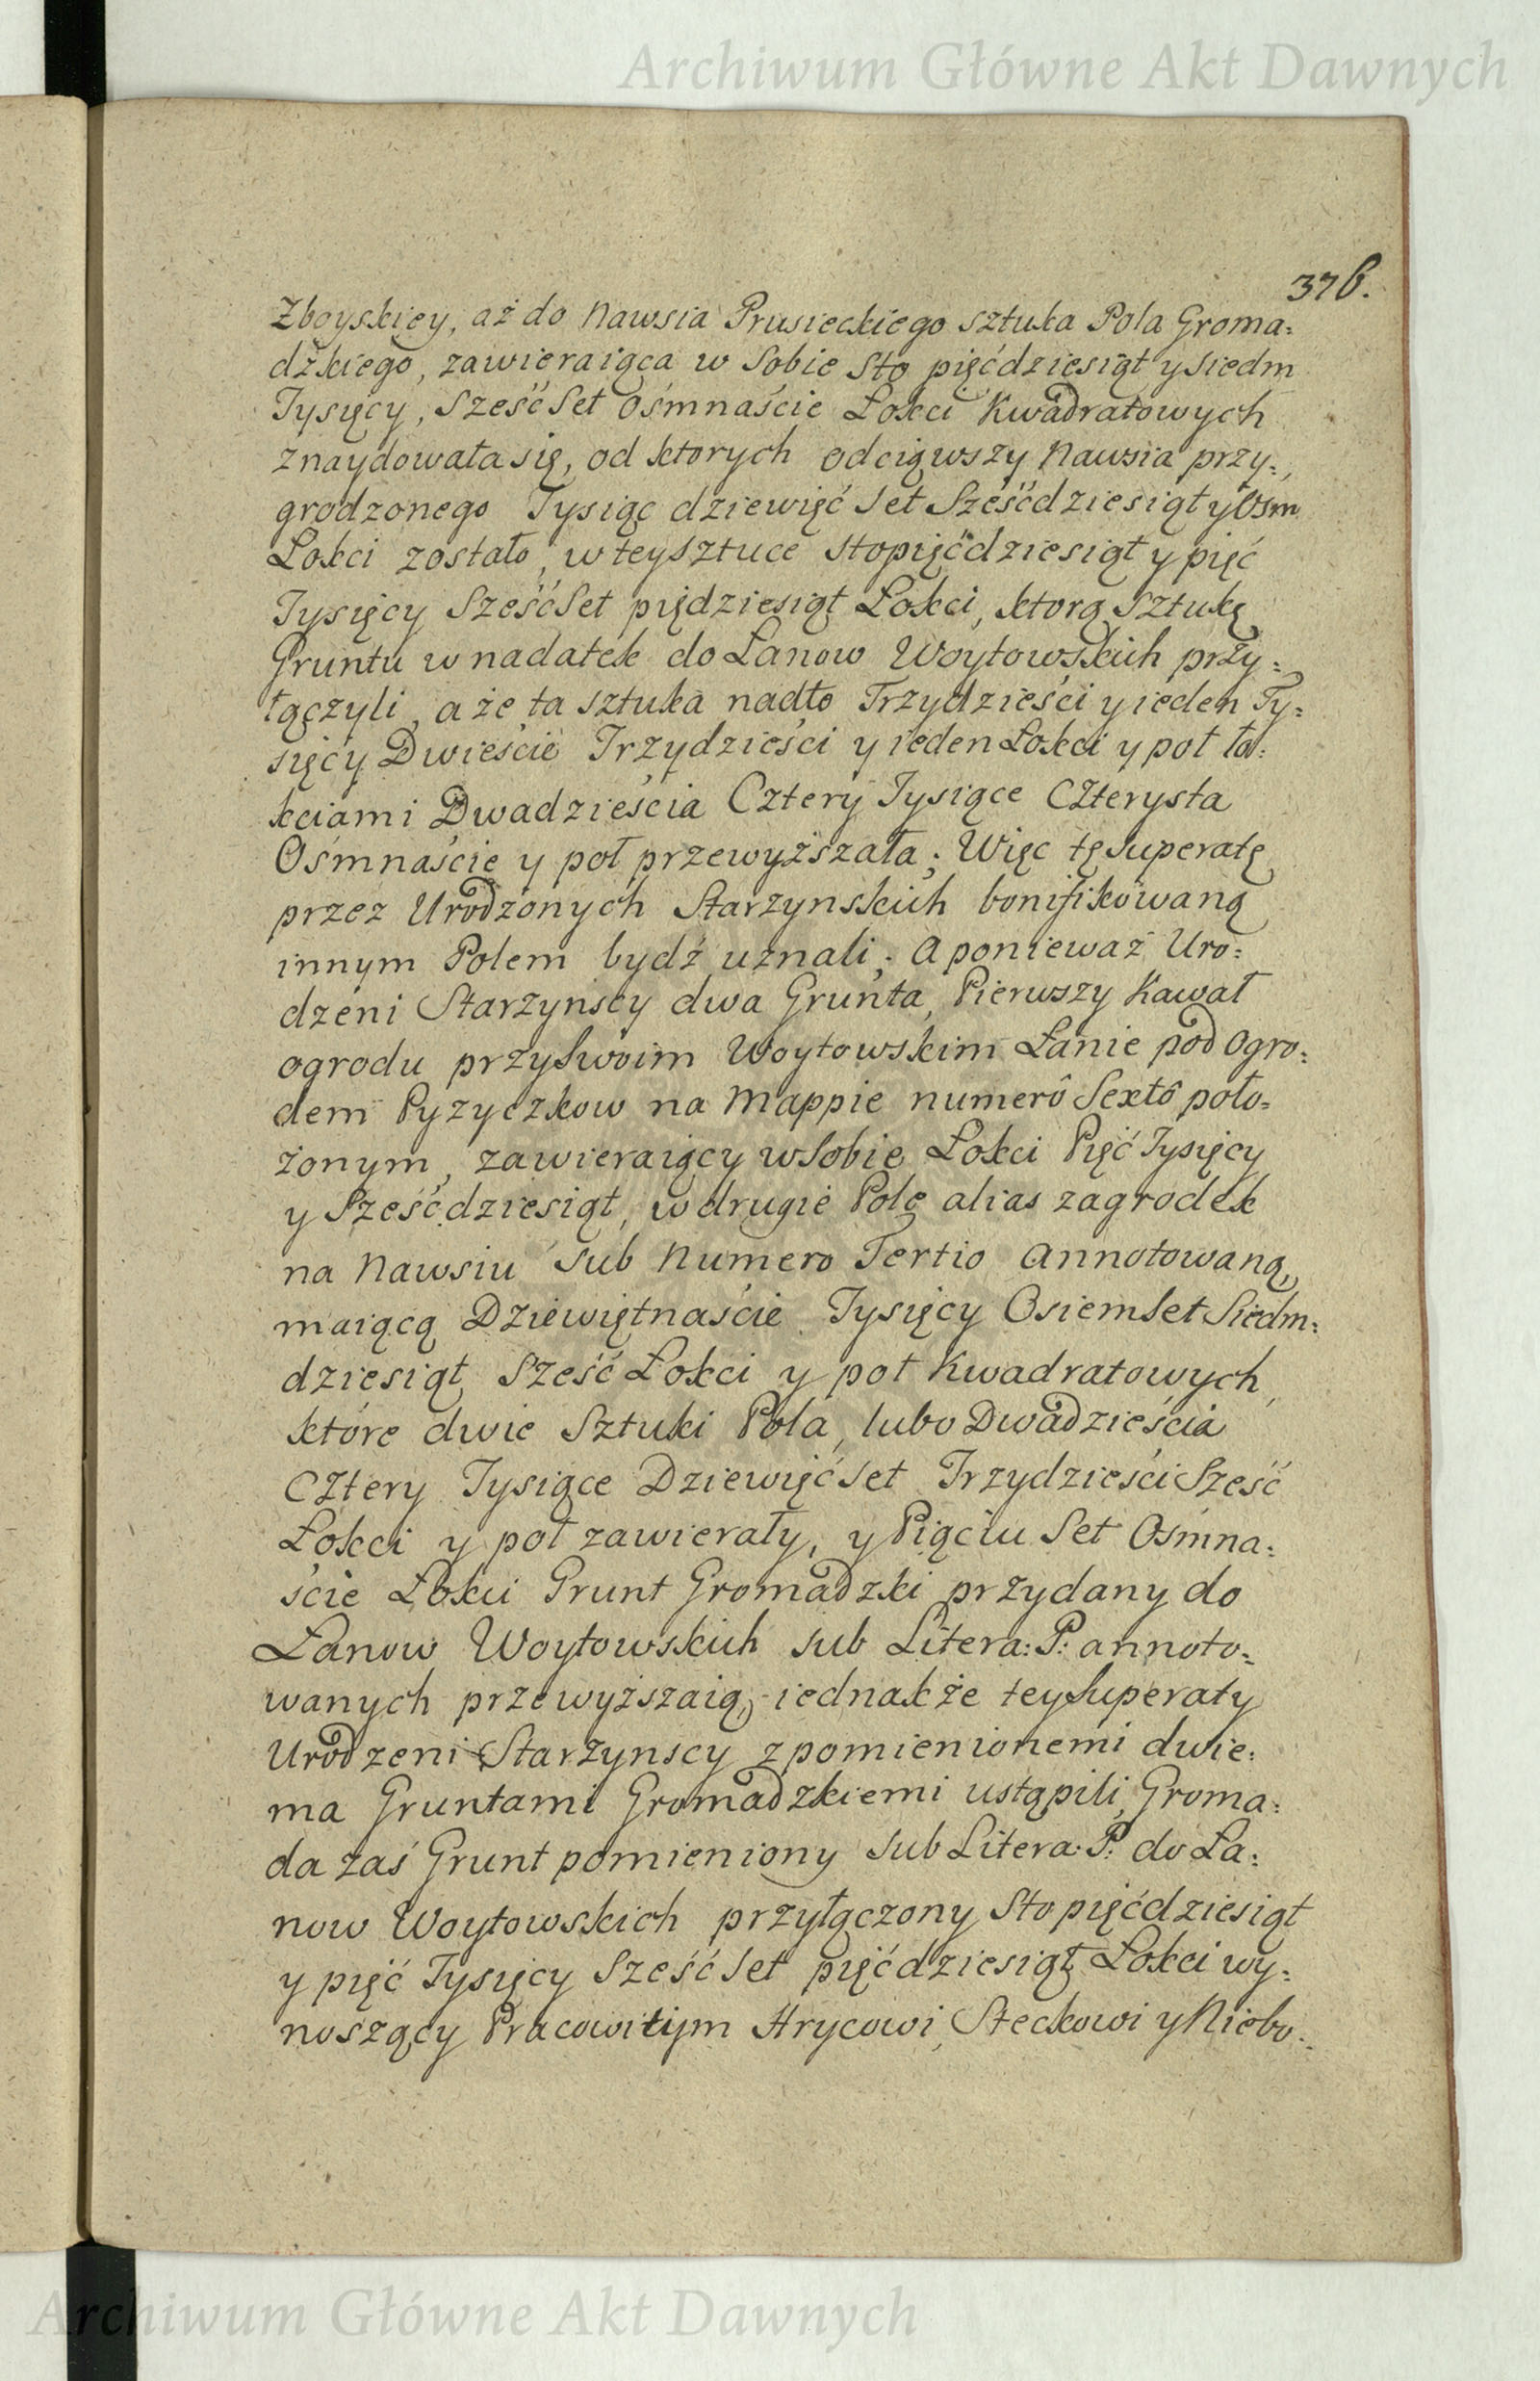 Archiwum Główne Akt Dawnych
376.
Zboyskiey, aż do Nawsia Prusieckiego sztuka Pola Groma=
dzkiego, zawieraiąca w sobie Sto pięćdziesiąt y siedm
Tysięcy, Sześć Set Ośmnaście Łokci Kwadratowych
znaydowała się, od ktorych odciąwszy Nawsia przy=
grodzonego Tysiąc dziewięć Set Sześćdziesiąt y Osm
Łokci zostało, w tey sztuce sto pięćdziesiąt y pięć
Tysięcy Sześć Set piędziesiąt Łokci, ktorą Sztukę
Gruntu w nadatek do Łanow Woytowskich przy=
łączyli, a że ta sztuka nadto Trzydzieści y ieden Ty=
sięcy Dwieście Trzydzieści y ieden Łokci y poł ło=
kciami Dwadzieścia Cztery Tysiące Czterysta
Ośmnaście y poł przewyższała; Więc tę Superatę
przez Urodzonych Starzynskich bonifikowaną
innym Polem bydź uznali; a ponieważ Uro=
dzeni Starzynscy dwa Grunta, Pierwszy Kawał
ogrodu przy swoim Woytowskim Łanie pod Ogro=
dem Pyzyczkow na Mappie numerô Sextô poło=
żonym, zawieraiący w Sobie Łokci Pięć Tysięcy
y Sześćdziesiąt, w drugie Pole alias zagrodek
na Nawsiu sub Numero Tertio annotowaną,
maiącą Dziewiętnaście Tysięcy Osiem Set Siedm=
dziesiąt Sześć Łokci y poł Kwadratowych,
które dwie Sztuki Pola, lubo Dwadzieścia
Cztery Tysiące Dziewięć Set Trzydzieści Sześć
Łokci y poł zawierały, y Pięciu Set Ośmna=
ście Łokci Grunt Gromadzki przydany do
Łanow Woytowskich sub Litera: P: annoto=
wanych przewyższaią, iednakże tey Superaty
Urodzeni Starzynscy z pomienionemi dwie=
ma Gruntami Gromadzkiemi ustąpili, Groma=
da zaś Grunt pomieniony sub Litera: P: do Ła=
now Woytowskich przyłączony Sto pięćdziesiąt
y pięć Tysięcy Sześć Set pięćdziesiąt Łokci wy=
noszący Pracowitym Hrycowi, Steckowi y Niebo=
Archiwum Główne Akt Dawnych